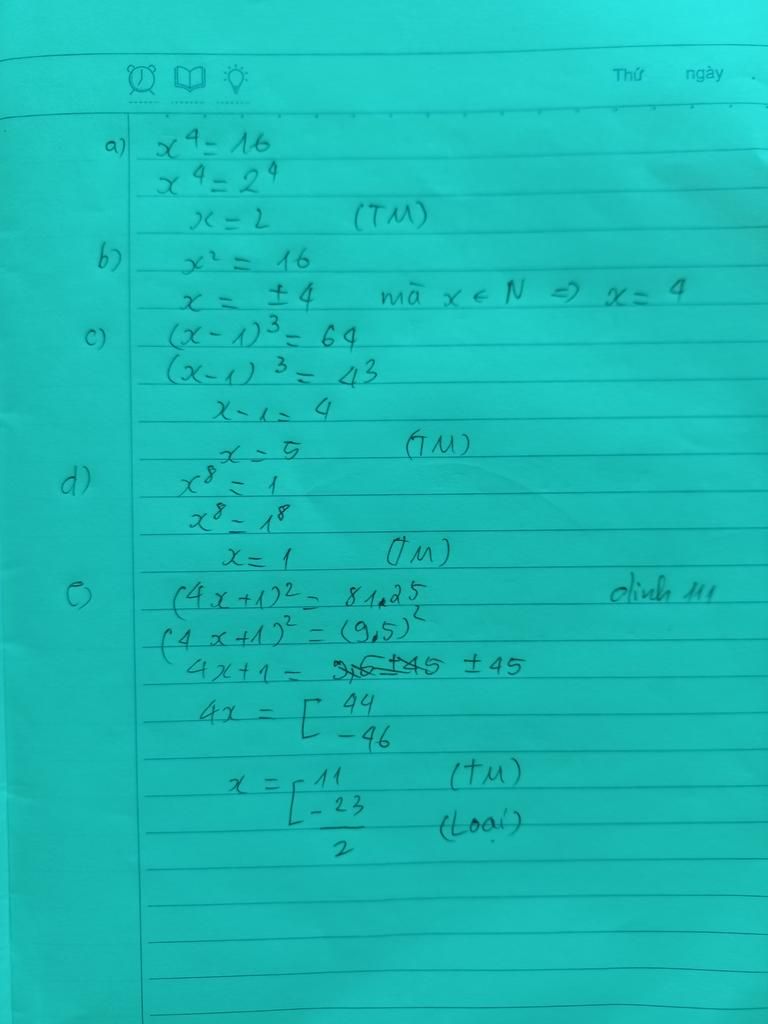 Thứ ngày .
a) x⁴ = 16
x⁴ = 2⁴
x = 2 (TM)
b) x² = 16
x = ±4 mà x ∈ N => x = 4
c) (x-1)³ = 64
(x-1)³ = 4³
x-1 = 4
x = 5 (TM)
d) x⁸ = 1
x⁸ = 1⁸
x = 1 (TM)
e) (4x+1)² = 81.25 dinh
(4x+1)² = (9.5)²
4x+1 = ±45 ±45
4x = [ 44
-46
x = [ 11 (TM)
-23/2 (Loại)